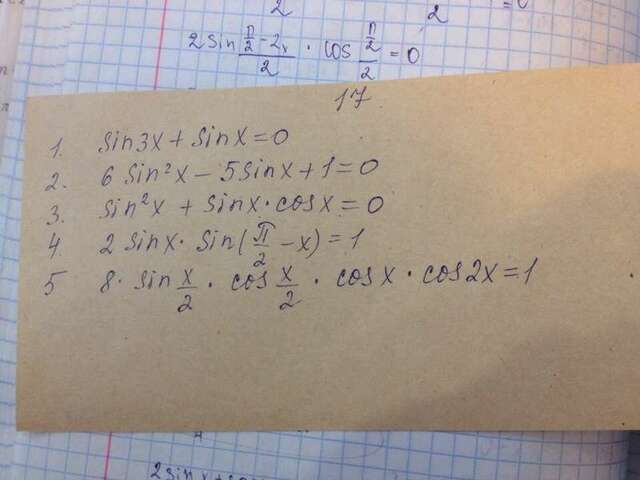 2 2 = 0
2 sin (π/2 - 2x)/2 · cos (π/2)/2 = 0
17
1. sin3x + sinx = 0
2. 6 sin²x - 5sinx + 1 = 0
3. sin²x + sinx · cosx = 0
4. 2 sinx · sin(π/2 - x) = 1
5 8 · sin x/2 · cos x/2 · cosx · cos2x = 1